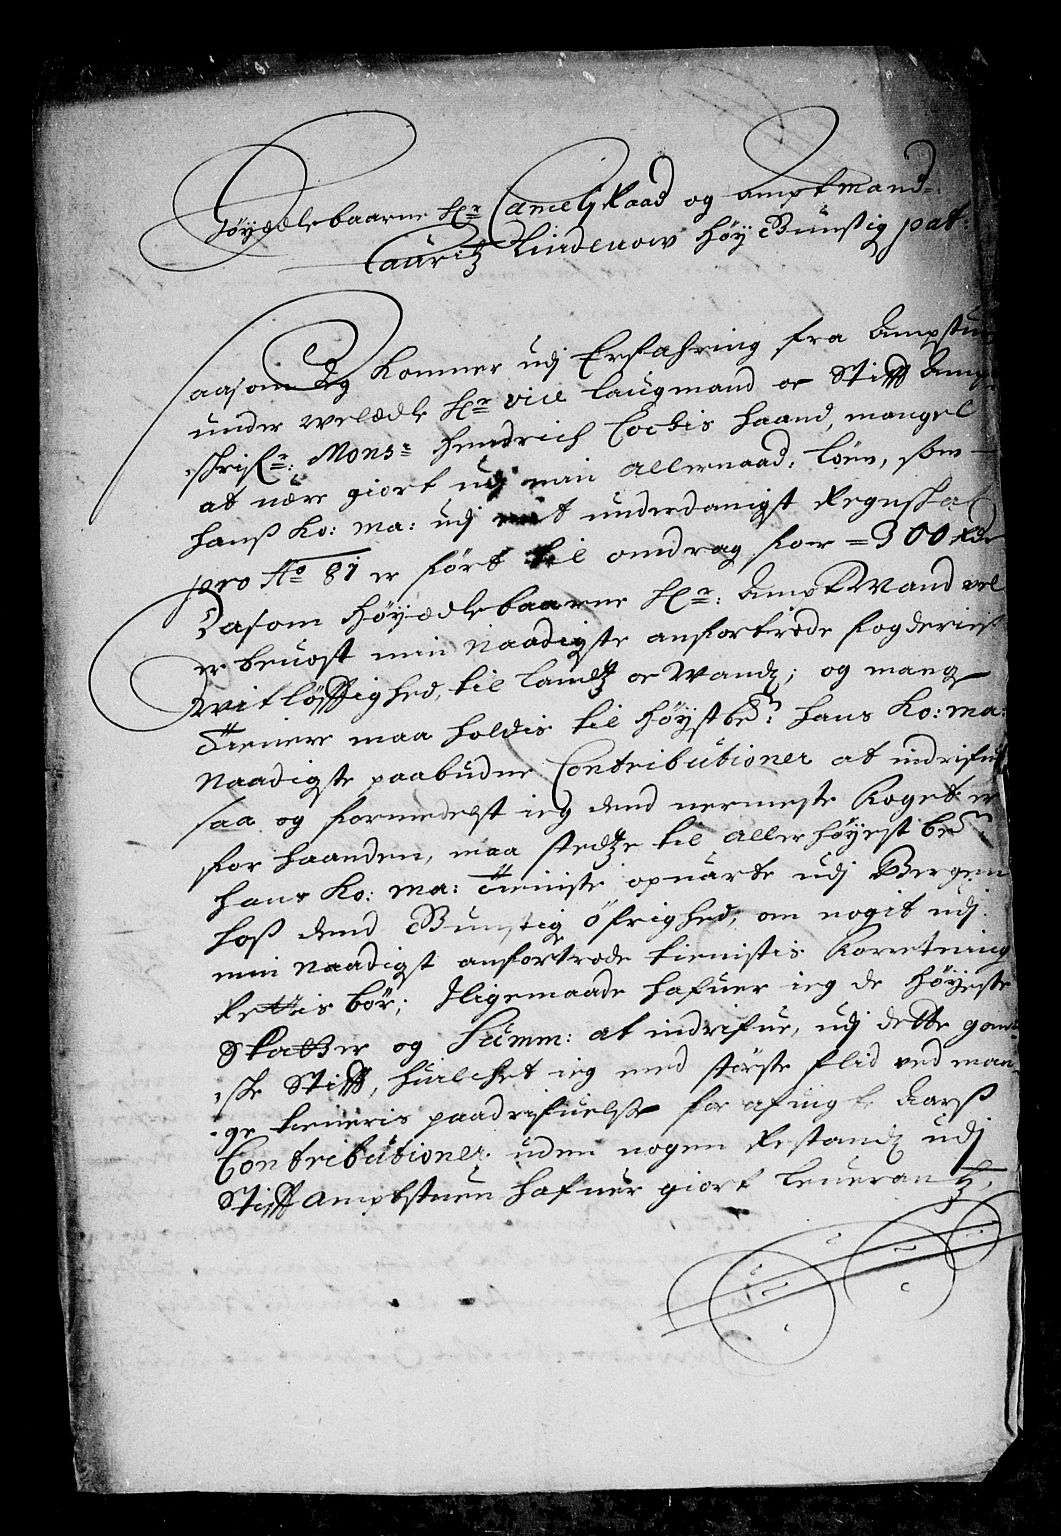 Höyædlebaarne Hr Cancelj Raad og amptmand
Lauritz Lindenow höy Gunstig pat:
aasom Jeg kommer udj Erfahring fra Ampstuen
under welædle Hr vice laugmand oc Stifft Ampt
schrifr: Monsr Hendrich Cockis haand, mangel
at være giort udj min allernaad: lönn, som
hanß Ko: Ma: udj mit underdanigst Regnschab
pro Ao 81 er fört til omdrag for = 300 Rdr
Dasom Höyædlebaarne Hr: AmptMand vel
er beuost min Naadigste anfortrode fogderies
witlöfftighed, til landtz oc Wandz; og mange
Tienere maa holdis til höystbe: hans Ko: Ma:
Naadigste paabudne Contributioner at indrifue
saa og formedelst ieg dend nermeste Foget er
for haanden, maa stedtze til aller höyest be:
hans Ko: Ma: Tieniste opuarte udj Bergen
hoß dend Gunstig öfrighed, om nogit udj
min Naadigst anfortrode tienistis Forretning
Rettis bör; Jligemaade hafuer ieg de höyeste
Skatter og Summ: at indrifue, udj dette gand
sche Stifft, huilchet ieg med störste flid ved man
ge tieneris paadrifuelse for afuigte Aarß
Contributioner uden nogen Restandz udj
Stifft Amptstuen hafuer giort leuerantz,